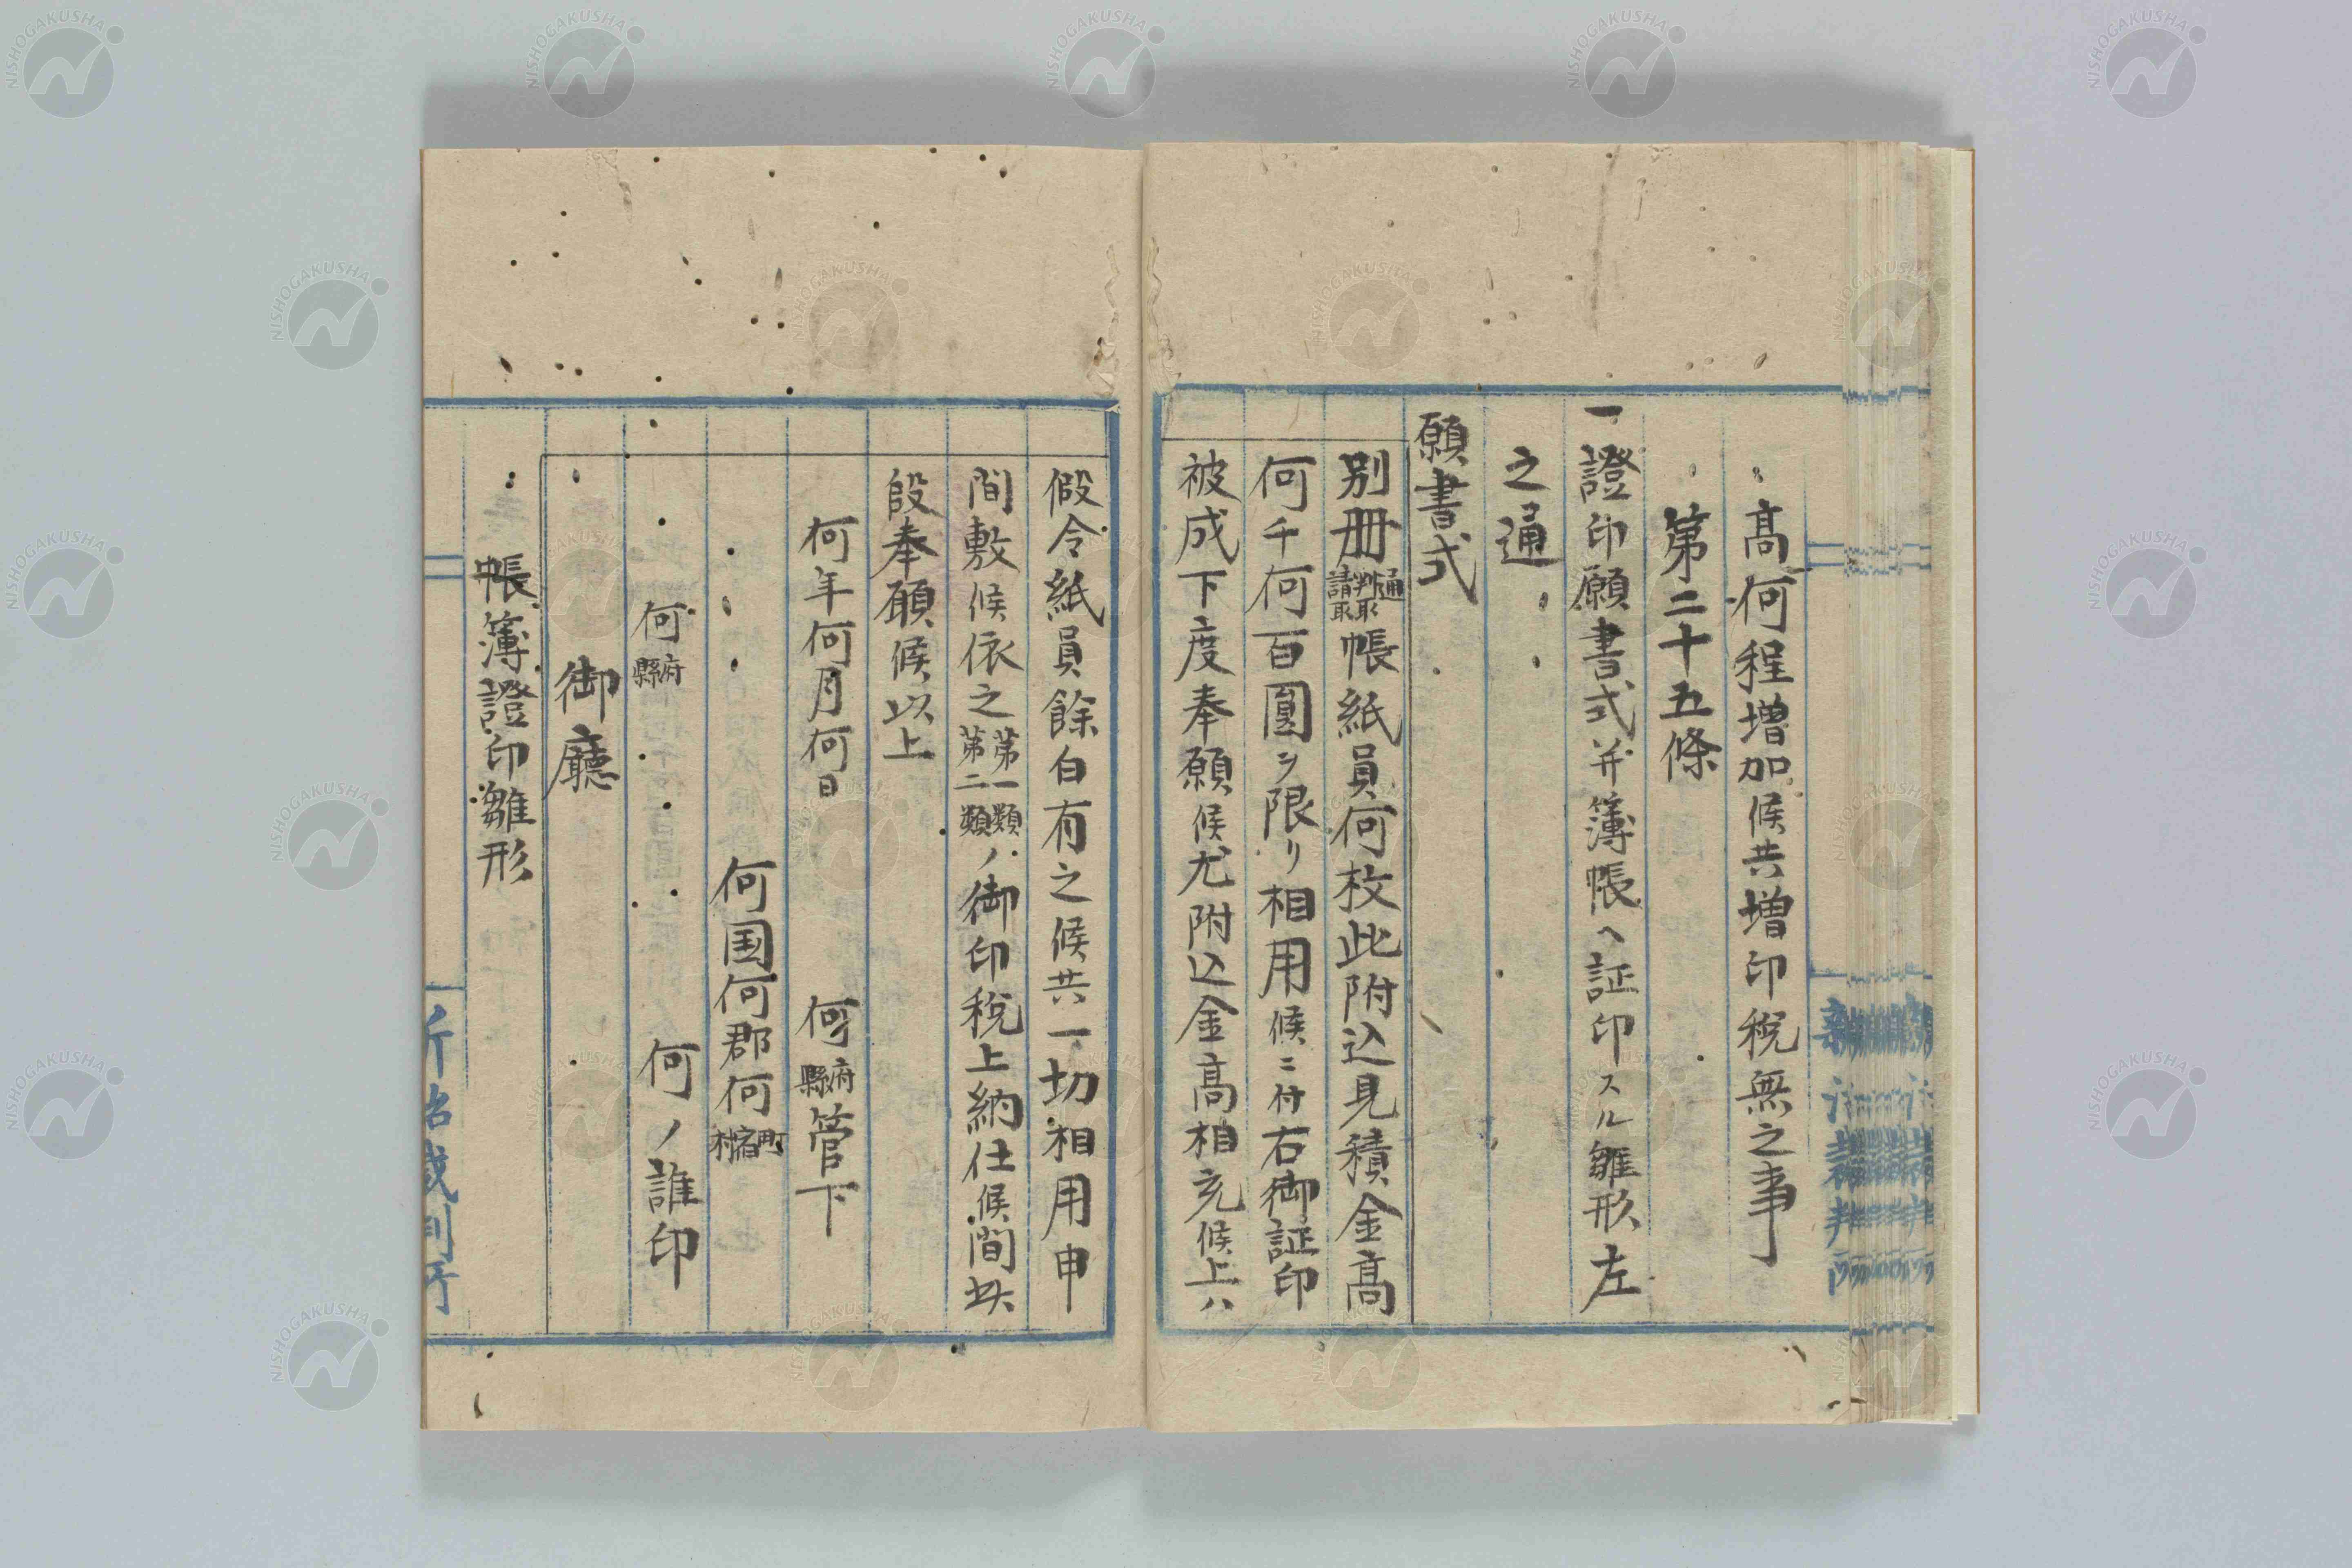 高何程増加候共増印税無之事
第二十五條
一證印願書式并簿帳ヘ証印スル雛形左
之通
願書式
別冊通判取請取帳紙員何枚此附込見積金高
何千何百圓ヲ限リ相用候ニ付右御証印
被成下度奉願候尤附込金高相充候上ハ
假令紙員餘白有之候共一切相用申
間敷候依之第一類第二類ノ御印税上納仕候間此
段奉願候以上
何年何月何日
何府縣管下
何国何郡何町宿村
何ノ誰印
何府縣
御廳
帳簿證印雛形
新治裁判所
NISHOGAKUSHA